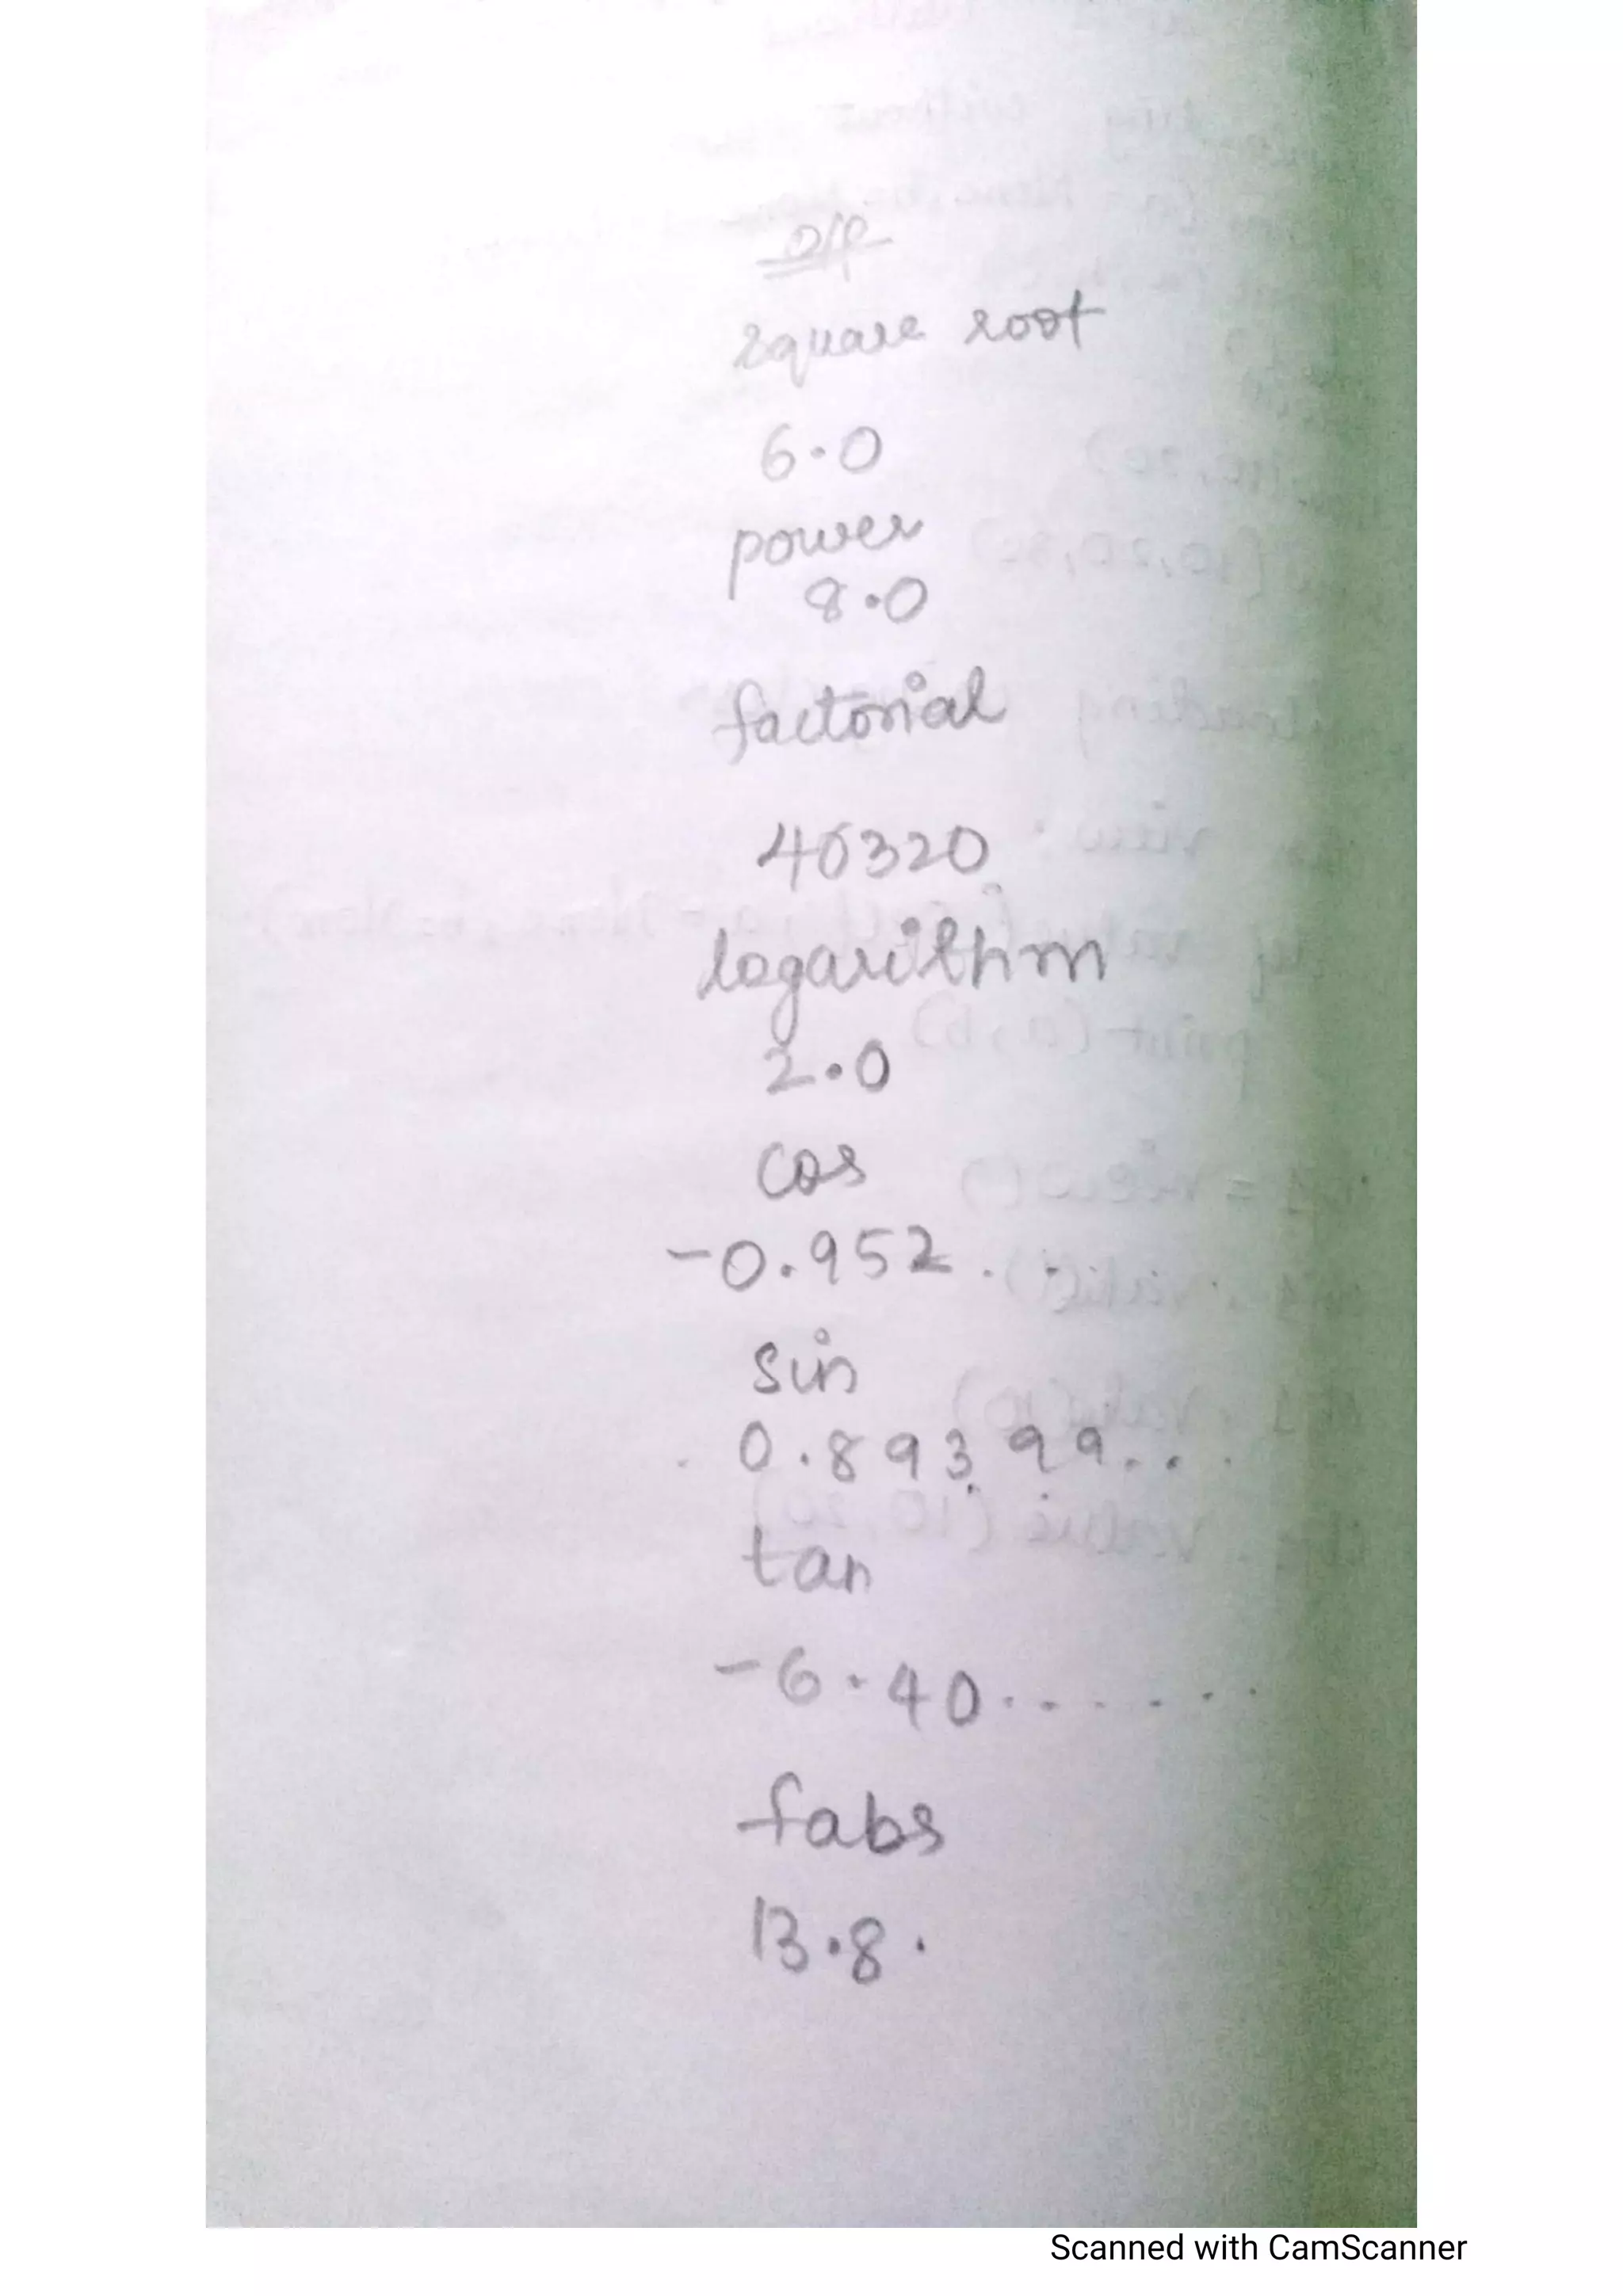 O/P
square root
6.0
power
8.0
factorial
40320
logarithm
2.0
cos
-0.952. .
sin
0.89399...
tan
-6.40.......
fabs
13.8.
Scanned with CamScanner